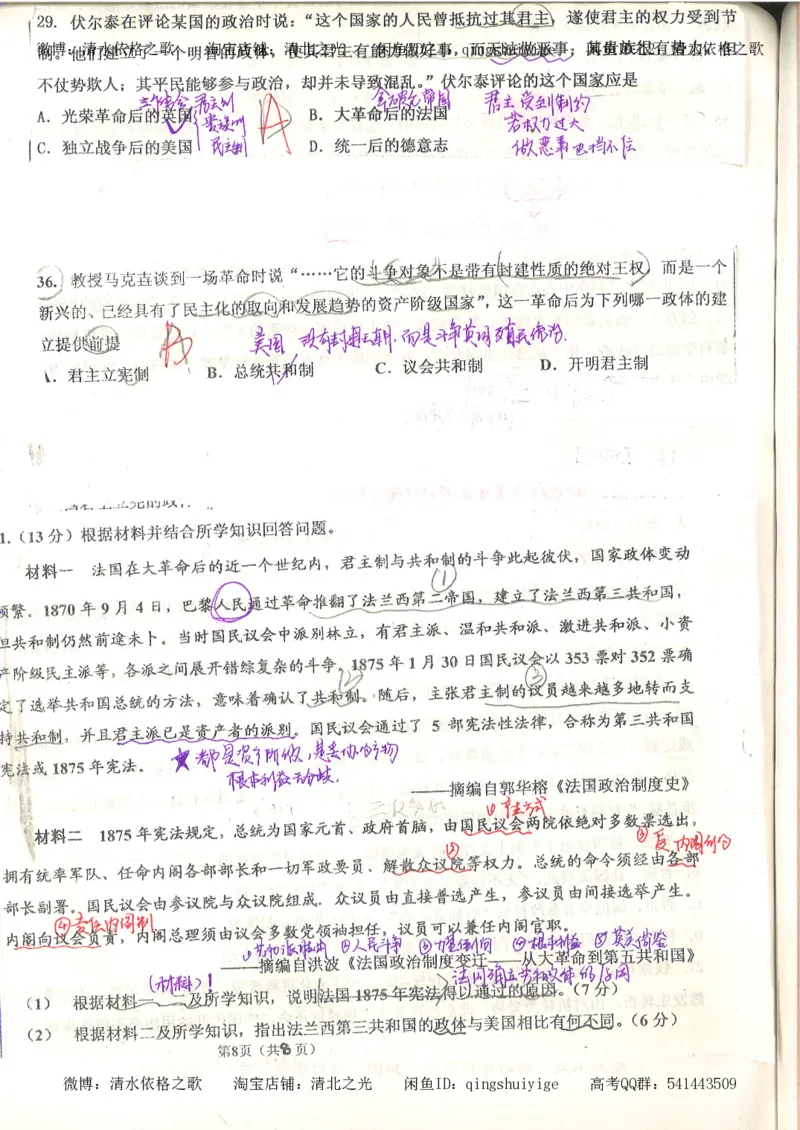 29. 伏尔泰在评论某国的政治时说：“这个国家的人民曾抵抗过其君主，遂使君主的权力受到节
制。他们建立了一个明智的政体，使其君主有能力做好事，而无法做恶事；其贵族很有势力，但
微博：清水依格之歌 淘宝店铺：清北之光 闲鱼ID：qingshuiyige
不仗势欺人；其平民能够参与政治，却并未导致混乱。”伏尔泰评论的这个国家应是
三级议会 君主制 拿破仑帝国 君主受到制约
A．光荣革命后的英国 贵族制 A B．大革命后的法国 若权力过大
C．独立战争后的美国 民主制 D．统一后的德意志 做恶事也挡不住
36. 教授马克垚谈到一场革命时说“……它的斗争对象不是带有封建性质的绝对王权，而是一个
新兴的、已经具有了民主化的取向和发展趋势的资产阶级国家”，这一革命后为下列哪一政体的建
立提供前提 B 美国 没有封建王朝，而是斗争英国殖民统治.
A．君主立宪制 B．总统共和制 C．议会共和制 D．开明君主制
1.（13 分）根据材料并结合所学知识回答问题。
材料一 法国在大革命后的近一个世纪内，君主制与共和制的斗争此起彼伏，国家政体变动
①
频繁。1870 年 9 月 4 日，巴黎人民通过革命推翻了法兰西第二帝国，建立了法兰西第三共和国，
但共和制仍然前途未卜。当时国民议会中派别林立，有君主派、温和共和派、激进共和派、小资
产阶级民主派等，各派之间展开错综复杂的斗争。1875 年 1 月 30 日国民议会以 353 票对 352 票确
② ③
定了选举共和国总统的方法，意味着确认了共和制。随后，主张君主制的议员越来越多地转而支
持共和制，并且君主派已是资产者的派别。国民议会通过了 5 部宪法性法律，合称为第三共和国
宪法或 1875 年宪法。 ★都是资产阶级，是妥协的产物
根本利益无分歧.
——摘编自郭华榕《法国政治制度史》
①产生方式
材料二 1875 年宪法规定，总统为国家元首、政府首脑，由国民议会两院依绝对多数票选出，
② ③受内阁制约
拥有统率军队、任命内阁各部部长和一切军政要员、解散众议院等权力。总统的命令须经由各部
部长副署。国民议会由参议院与众议院组成．众议员由直接普选产生，参议员由间接选举产生。
④责任内阁制
内阁向议会负责，内阁总理须由议会多数党领袖担任，议员可以兼任内阁官职。
②人民斗争 ④根本利益
——摘编自洪波《法国政治制度变迁——从大革命到第五共和国》
（材料）1 法国确立共和政体的原因
（1） 根据材料一、二及所学知识，说明法国 1875 年宪法得以通过的原因。（7 分）
（2） 根据材料二及所学知识，指出法兰西第三共和国的政体与美国相比有何不同。（6 分）
第8页（共8 页）
微博：清水依格之歌 淘宝店铺：清北之光 闲鱼ID：qingshuiyige 高考QQ群：541443509